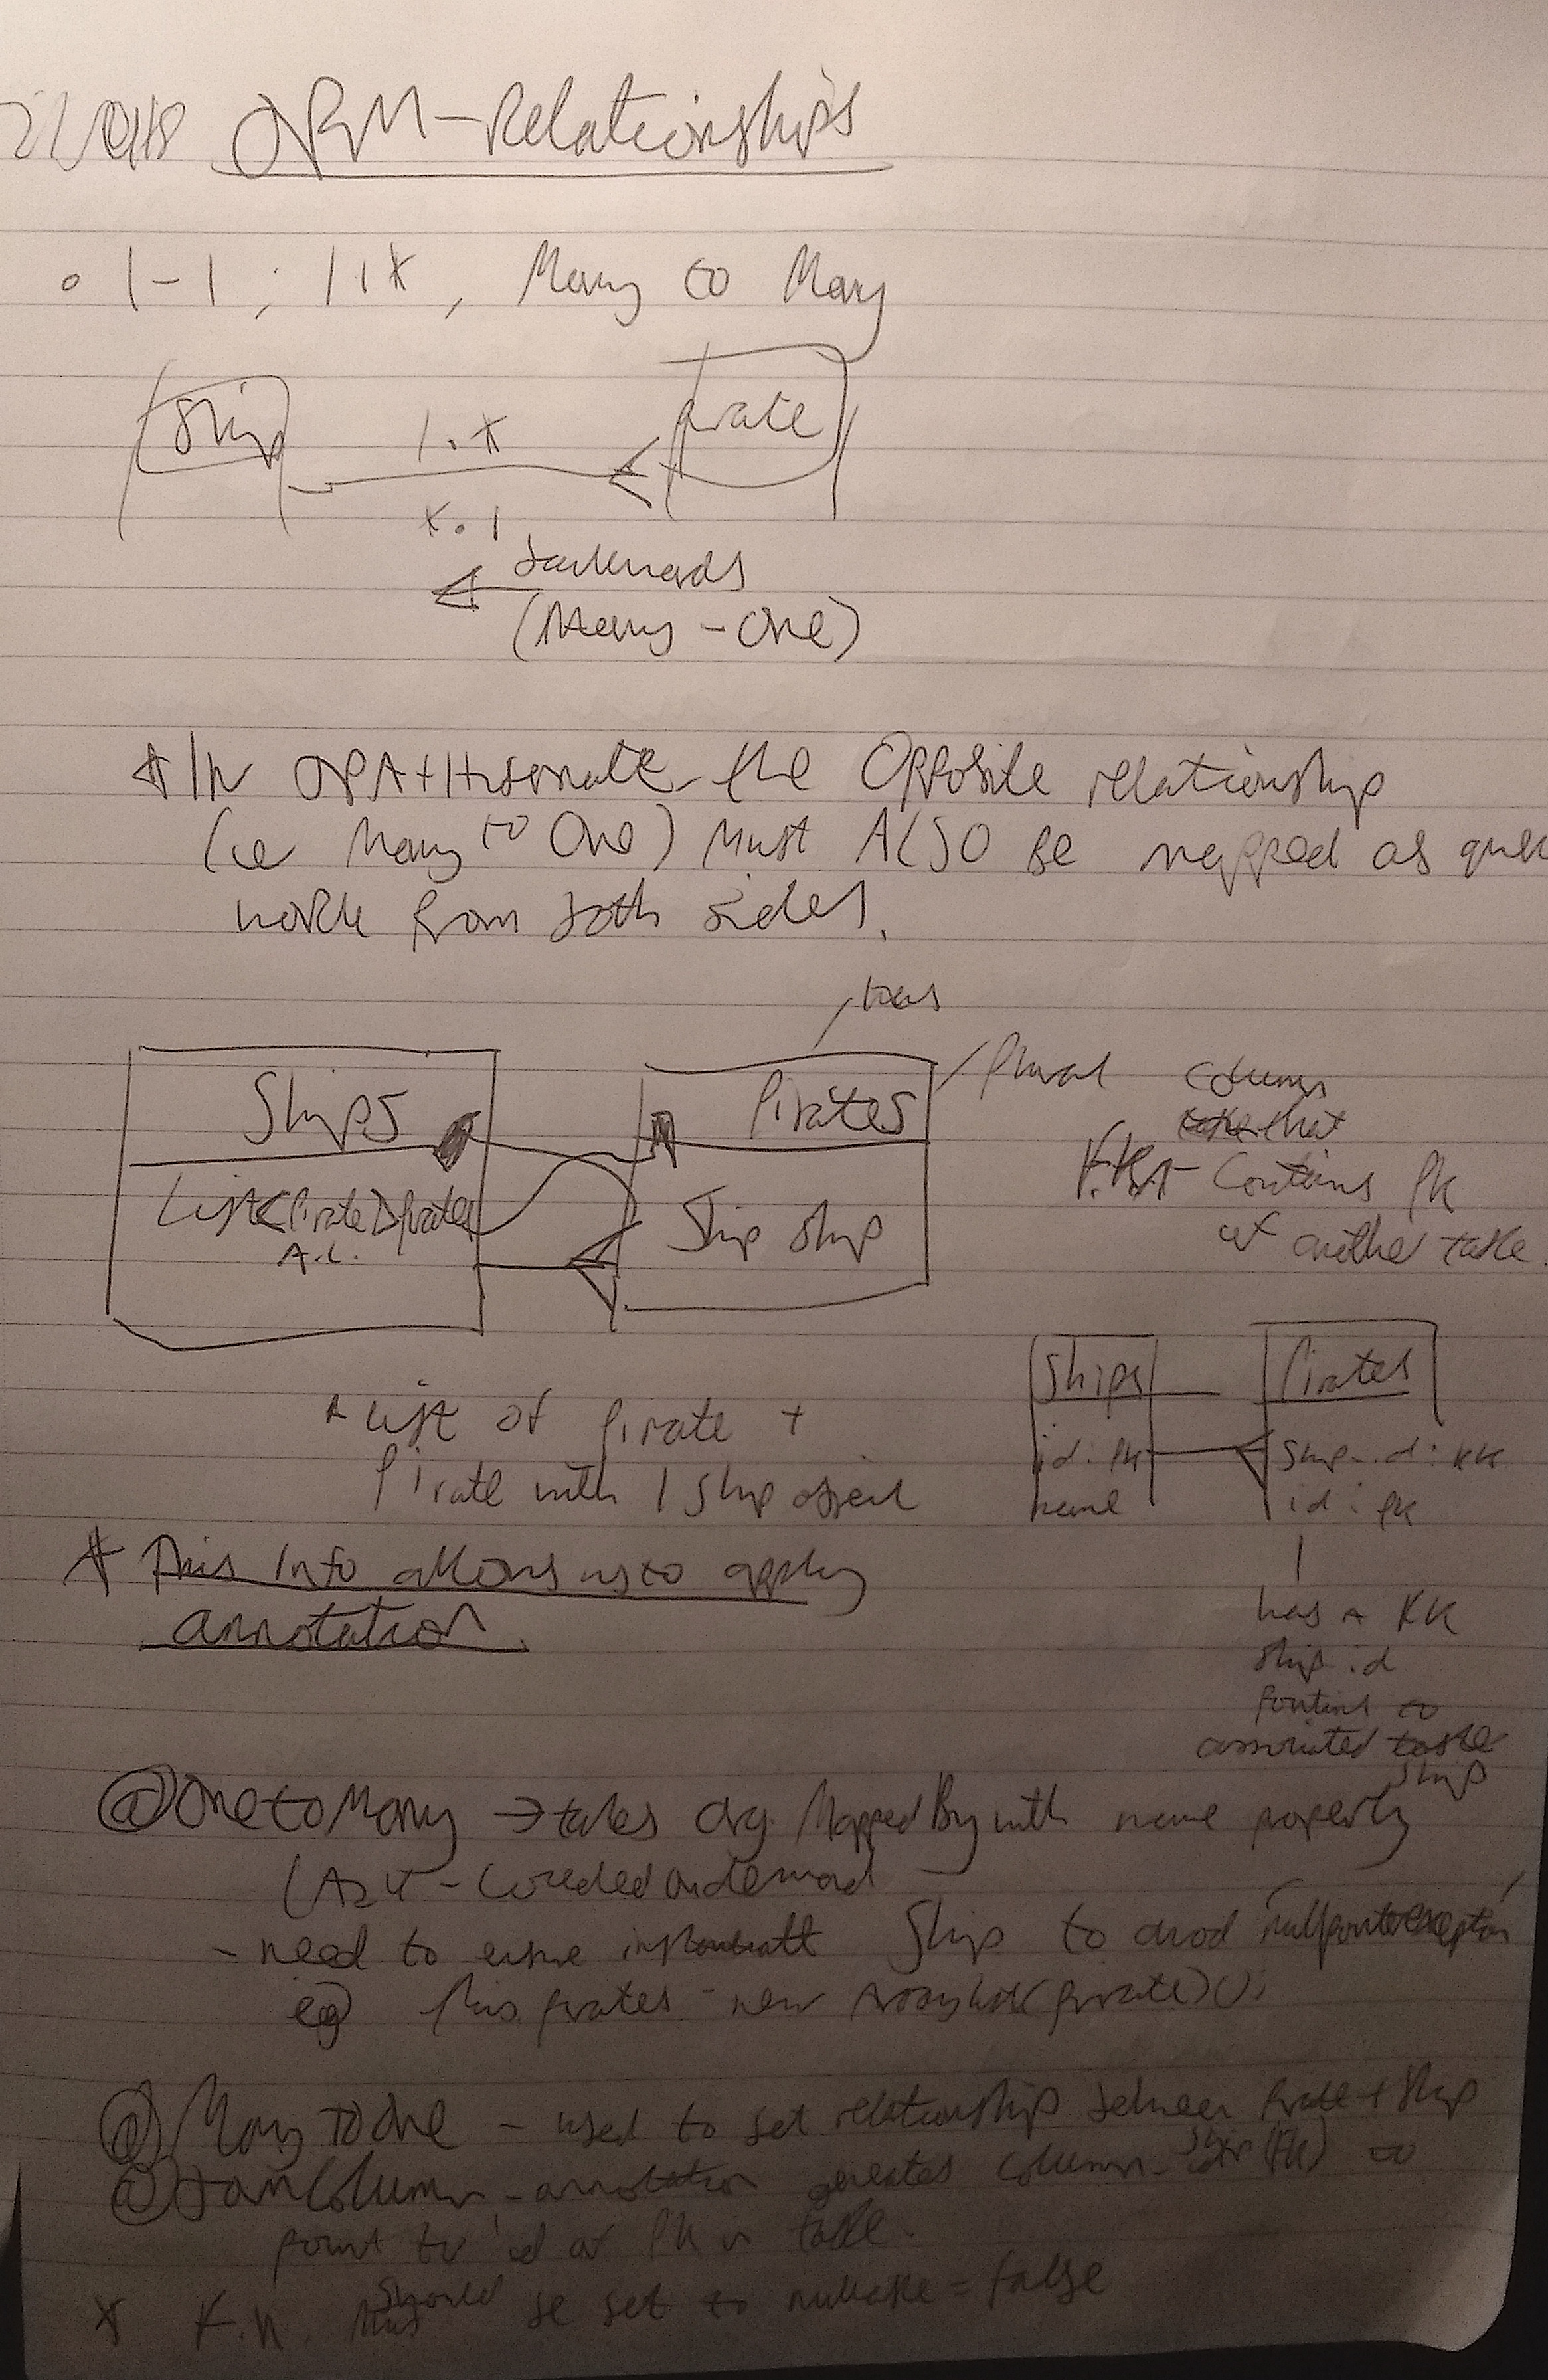 ORM - Relationships
• 1-1 ; 1:* , Many to Many
Ship
1.*
Pirate
*.1
backwards
(Many - One)
* In JPA + Hibernate the Opposite relationship
(ie Many to One) Must ALSO be mapped as
work from both sides.
has
Ships
Pirates
plural
List<Pirate> pirates
A.L.
Ship ship
column
that
F.K - Contains PK
of another table.
* List of Pirate +
Pirate with 1 Ship object
Ships
id : PK
name
Pirates
ship_id : FK
id : PK
has a FK
ship id
pointing to
associated table
ship
* This Info allows us to apply
annotation.
@OneToMany → takes arg. Mapped By with name property
(LAZY - Loaded on demand
- need to ensure Ship to avoid nullpointerexception
eg this.pirates = new ArrayList(pirate)();
@ManyToOne - used to set relationship between Pirate + Ship
@JoinColumn - annotation creates column - ship id (FK) to
point to id or PK in table.
* F.K. should be set to nullable = false